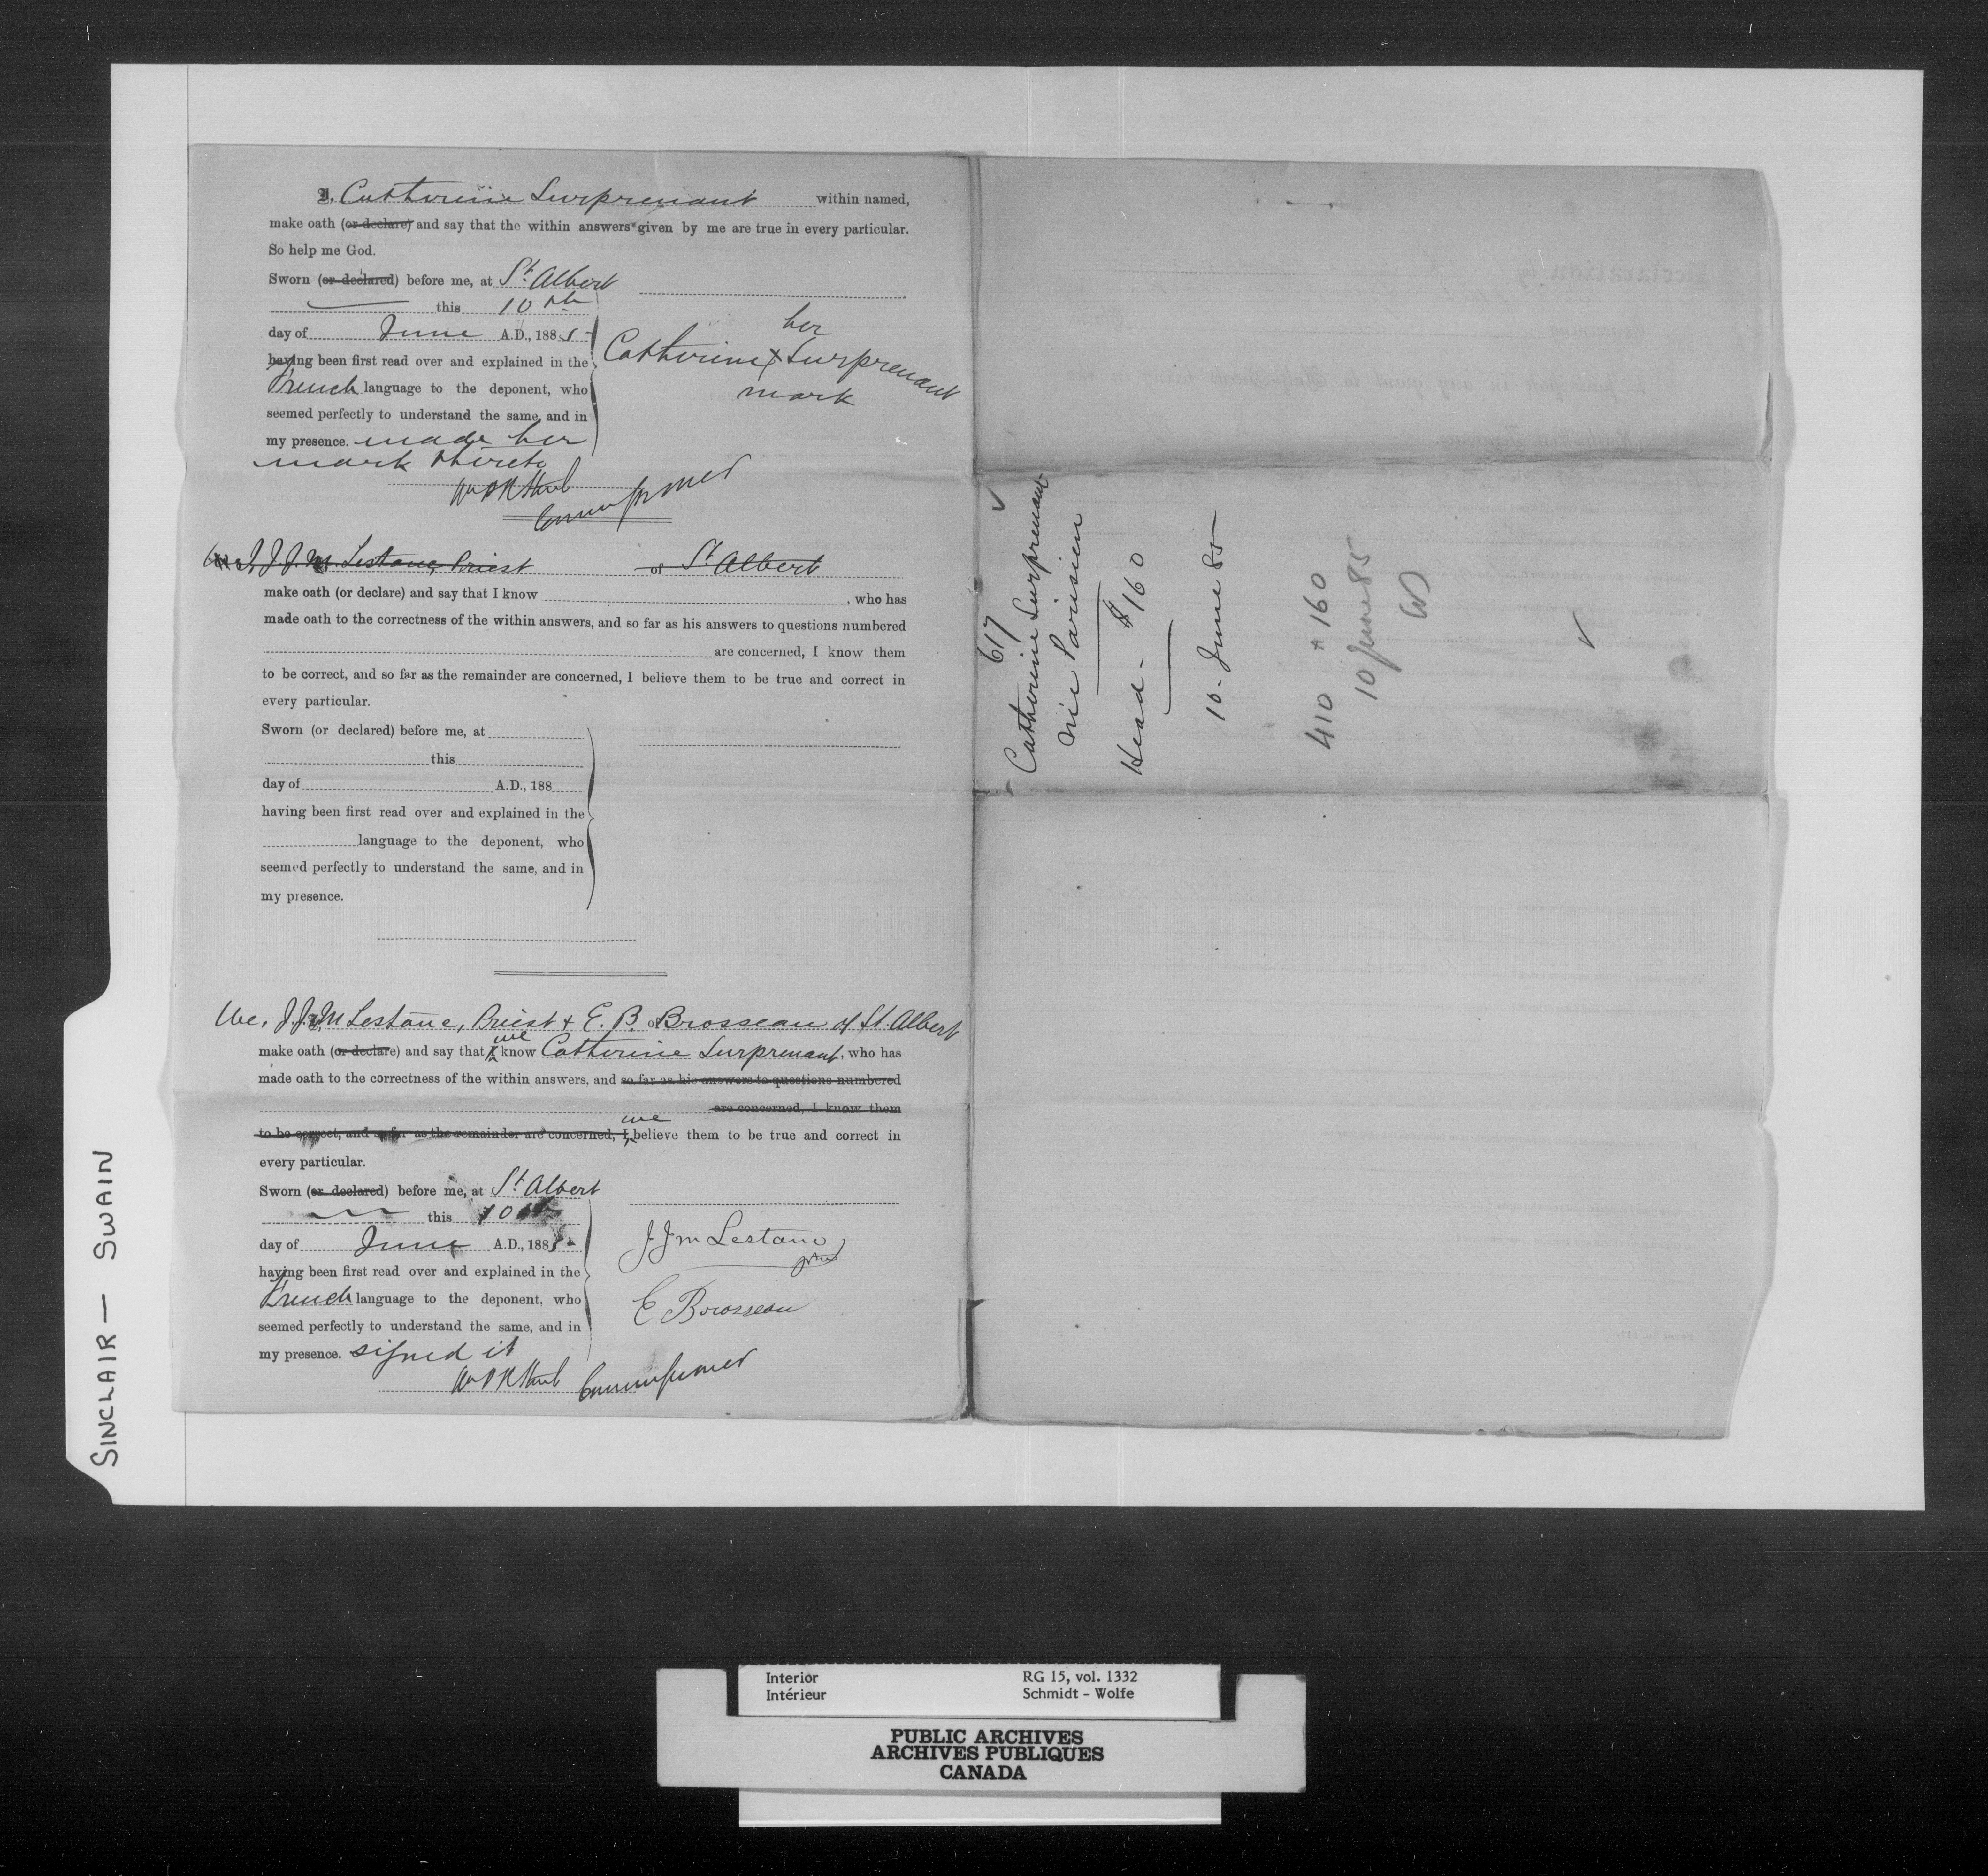 I, Catherine Surprenant within named,
make oath (or declare) and say that the within answers given by me are true in every particular.
So help me God.
Sworn (or declared) before me, at St. Albert
this 10th
day of June A.D., 1885
having been first read over and explained in the
French language to the deponent, who
seemed perfectly to understand the same, and in
my presence. made her
mark thereto
her
Catherine X Surprenant
mark
Commissioner
We, J. J. M. Lestanc, Priest of St Albert
make oath (or declare) and say that I know , who has
made oath to the correctness of the within answers, and so far as his answers to questions numbered
are concerned, I know them
to be correct, and so far as the remainder are concerned, I believe them to be true and correct in
every particular.
Sworn (or declared) before me, at
this
day of A.D., 188
having been first read over and explained in the
language to the deponent, who
seemed perfectly to understand the same, and in
my presence.
We, J. J. M Lestanc, Priest & E. B. of Brosseau of St. Albert
make oath (or declare) and say that I we know Catherine Surprenant, who has
made oath to the correctness of the within answers, and so far as his answers to questions numbered
are concerned, I know them
to be correct, and so far as the remainder are concerned, I we believe them to be true and correct in
every particular.
Sworn (or declared) before me, at St. Albert
this 10th
day of June A.D., 1885
having been first read over and explained in the
French language to the deponent, who
seemed perfectly to understand the same, and in
my presence. signed it
J. J. M Lestanc
E Brosseau
Commissioner
617
Catherine Surprenant
née Parisien
Head - $160
10 - June 85
410 160
10 June 85
SINCLAIR — SWAIN
Interior RG 15, vol. 1332
Intérieur Schmidt - Wolfe
PUBLIC ARCHIVES
ARCHIVES PUBLIQUES
CANADA